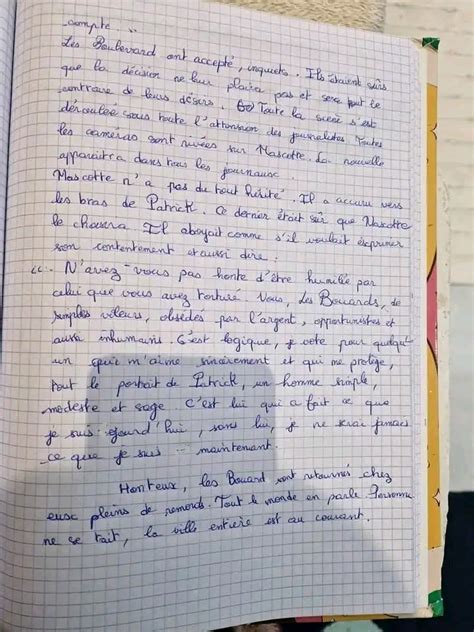 compte "
Les Boulevard ont accepté, inquets. Ils étaient sûrs
que la décision ne leur plaira pas et sera tout le
contraire de leurs désirs. Toute la scène s'est
déroulée sous toute l'attension des journalistes. Toutes
les caméras sont rivées sur Mascotte. La nouvelle
apparaitra dans tous les journaux
Mascotte n'a pas du tout hésité. Il a accuru vers
les bras de Patrick. Ce dernier était sûr que Mascotte
le choisira. Il aboyait comme s'il voulait exprimer
son contentement et aussi dire :
"- N'avez-vous pas honte d'être humilié par
celui que vous avez torturé. Vous, les Bouards, de
simples voleurs, obsédés par l'argent, opportunistes et
aussi inhumains. C'est logique, je vote pour quelqu'
un qui m'aime sincèrement et qui me protège,
tout le portrait de Patrick, un homme simple,
modeste et sage. C'est lui qui a fait ce que
je suis ajourd'hui, sans lui, je ne serai jamais
ce que je suis maintenant.
Honteux, les Bouard sont retournés chez
eux pleins de remords. Tout le monde en parle. Personne
ne se tait, la ville entière est au courant.